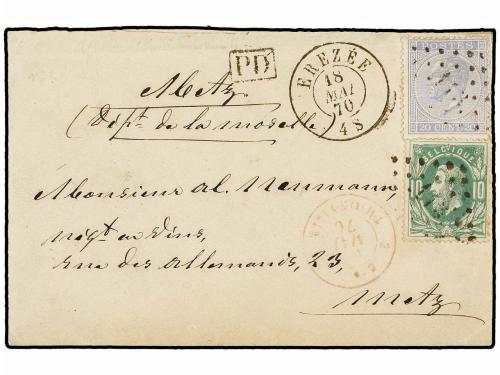 POSTES
20 CENT
PD
EREZÉE
18
MAI
70
4 S
Metz
Dépt. de la moselle
BELGIQUE
10 10
Monsieur al. Neumann,
négt en Vins,
rue des Allemands, 23,
Metz
MAI
70